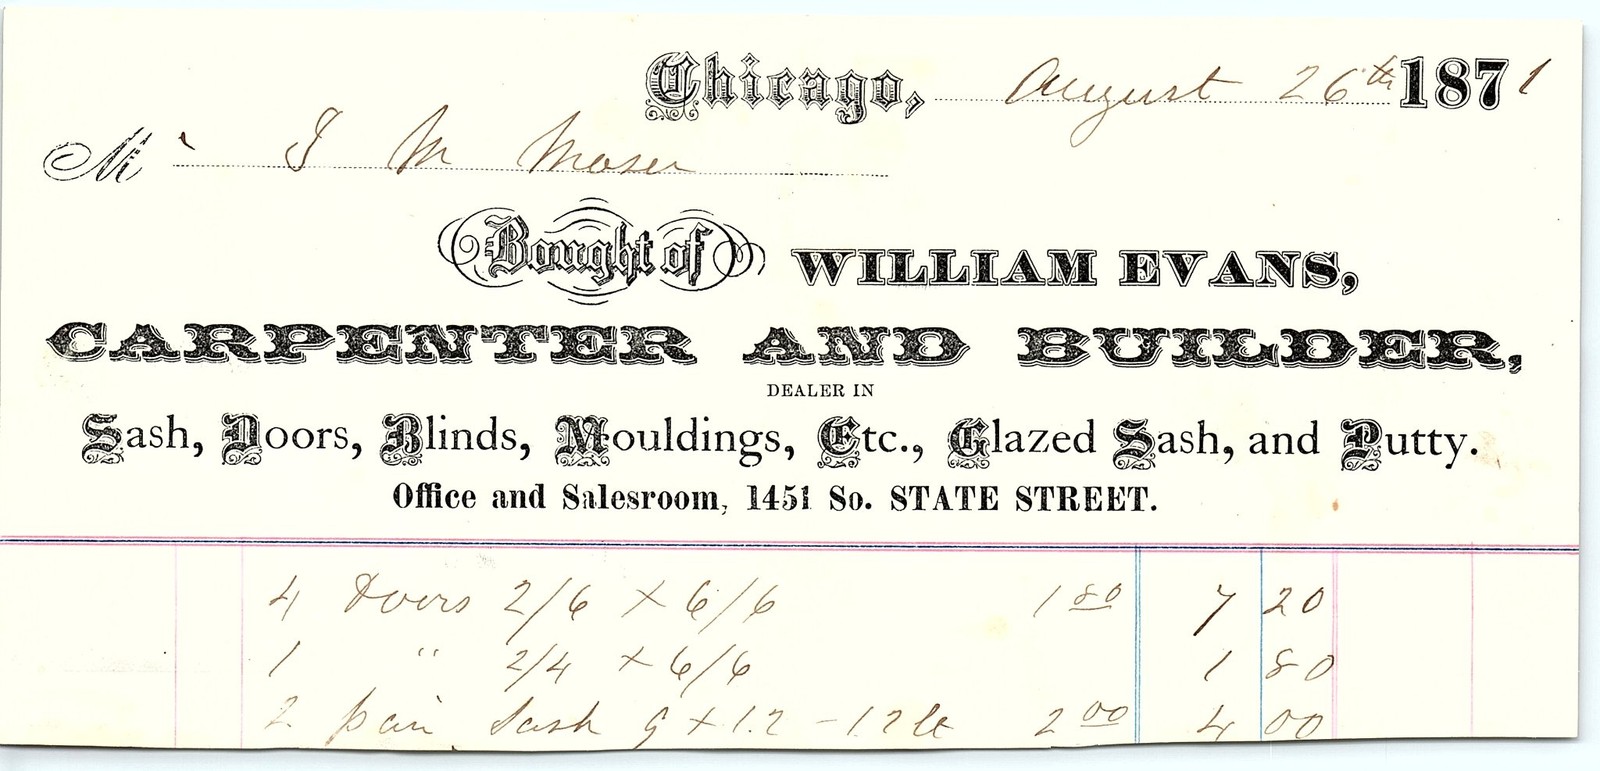 Chicago, August 26th 1871
Mr J M Moser
Bought of WILLIAM EVANS,
CARPENTER AND BUILDER,
DEALER IN
Sash, Doors, Blinds, Mouldings, Etc., Glazed Sash, and Putty.
Office and Salesroom, 1451 So. STATE STREET.
4 Doors 2/6 x 6/6 1 80 7 20
1 " 2/4 x 6/6 1 80
2 pair Sash 9 x 12 - 12 lt 2 00 4 00